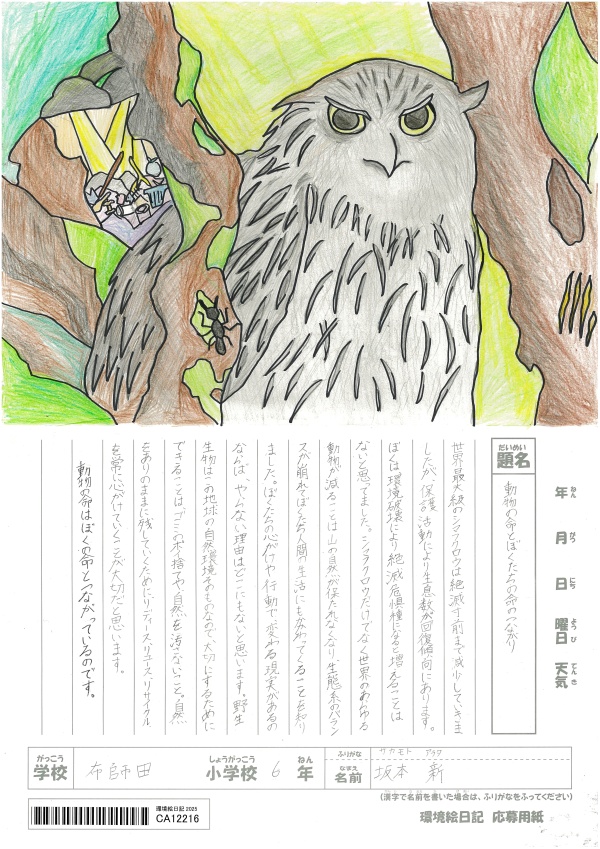 だいめい
題名
動物の命とぼくたちの命のつながり
年 ねん
月 がつ
日 にち
曜日 ようび
天気 てんき
世界最大級のシマフクロウは絶滅寸前まで減少していきま
したが、保護活動により生息数が回復傾向にあります。
ぼくは環境破壊により絶滅危惧種になると増えることは
ないと思ってました。シマフクロウだけでなく世界のあらゆる
動物が減ることは山の自然が保たれなくなり、生態系のバラン
スが崩れてぼくたち人間の生活にも変わってくることを知り
ました。ぼくたちの心がけや行動で変わる現実があるの
ならば、やらない理由はどこにもないと思います。野生
生物はこの地球の自然環境そのものなので、大切にするために
できることは、ゴミのポイ捨てや自然を汚さないこと。自然
をありのままに残していくためにリデュース、リユース、リサイクル
を常に心がけていくことが大切だと思います。
動物の命はぼくの命とつながっているのです。
がっこう
学校
布師田
しょうがっこう
小学校
6
ねん
年
ふりがな
サカモト アラタ
なまえ
名前
坂本 新
(漢字で名前を書いた場合は、ふりがなをふってください)
環境絵日記 2025
CA12216
環境絵日記 応募用紙